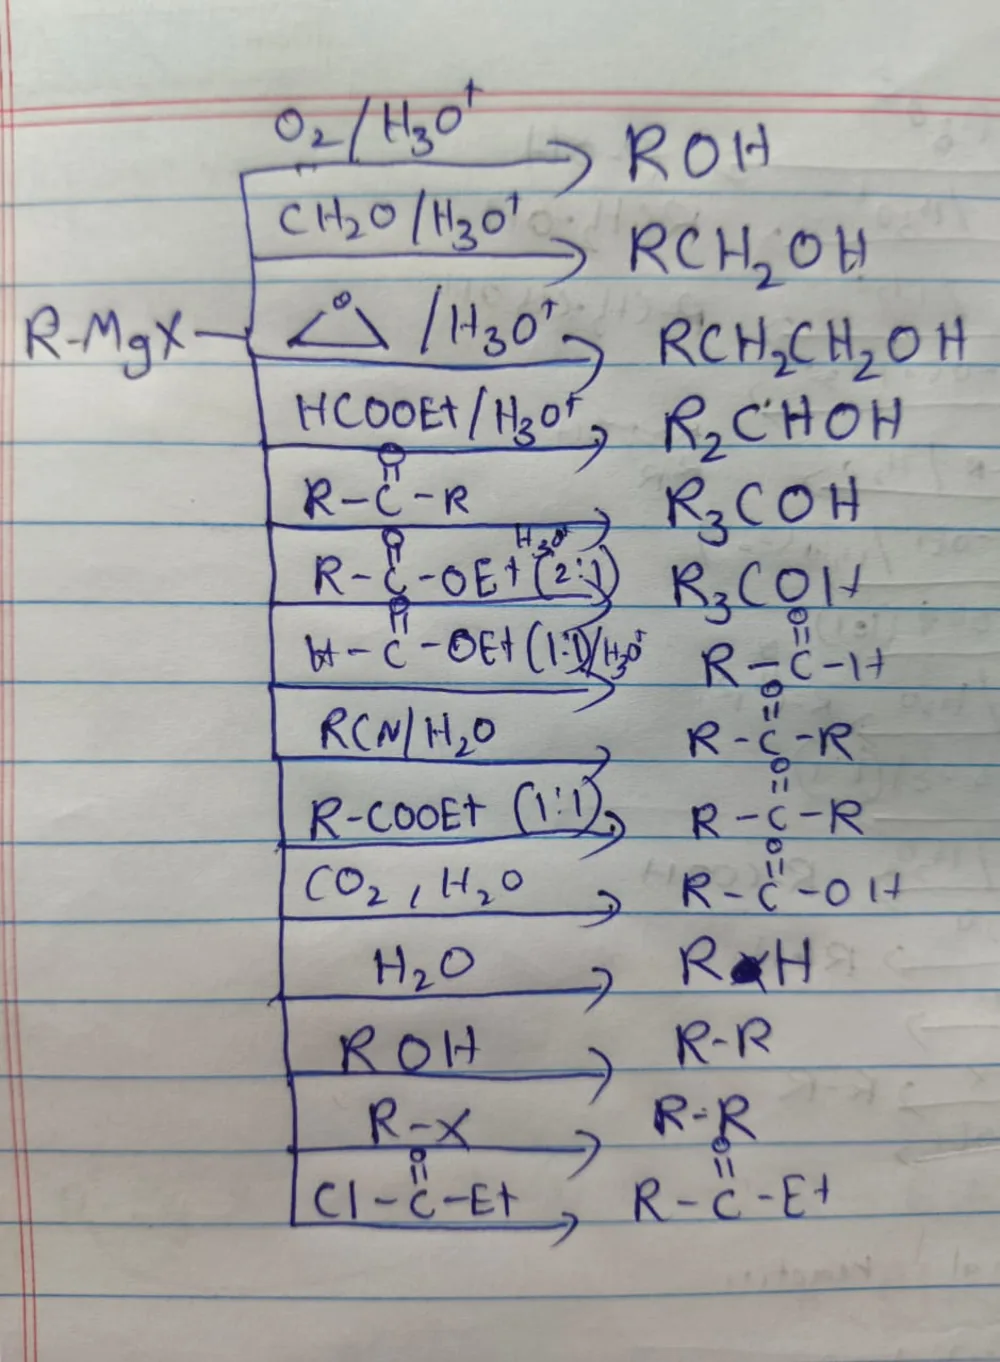 O₂/H₃O⁺ → ROH
CH₂O/H₃O⁺ → RCH₂OH
R-MgX
O /H₃O⁺ → RCH₂CH₂OH
HCOOEt/H₃O⁺ → R₂CHOH
O
R-C-R → R₃COH
O H₃O⁺
R-C-OEt (2:1) → R₃COH
O O
H-C-OEt (1:1)/H₃O⁺ → R-C-H
O
RCN/H₂O → R-C-R
O
R-COOEt (1:1) → R-C-R
O
CO₂, H₂O → R-C-OH
H₂O → R H
ROH → R-R
R-X → R-R
O O
Cl-C-Et → R-C-Et